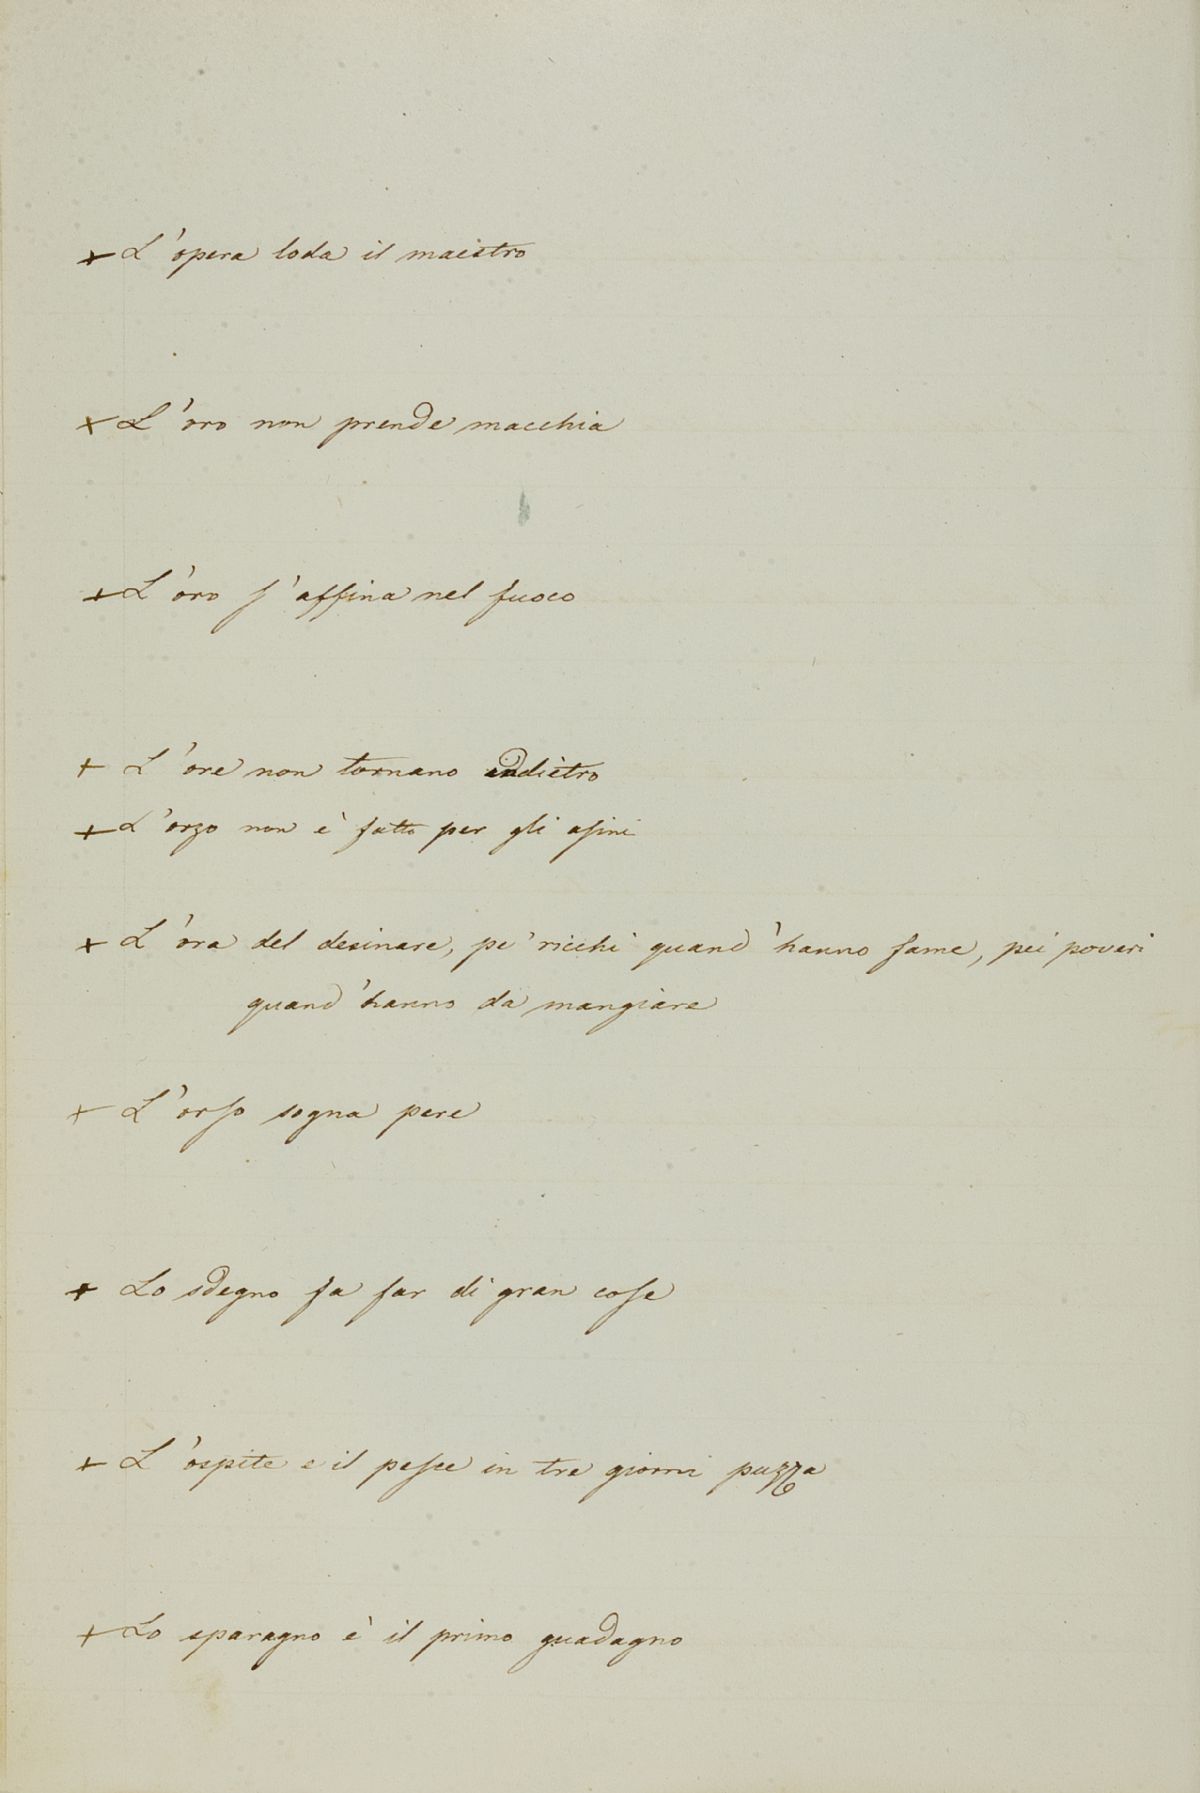 + L'opera loda il maestro
+ L'oro non prende macchia
+ L'oro s'affina nel fuoco
+ L'ore non tornano indietro
+ L'orzo non è fatto per gli asini
+ L'ora del desinare, pe' ricchi quand'hanno fame, pei poveri
quand'hanno da mangiare
+ L'orso sogna pere
+ Lo sdegno fa far di gran cose
+ L'ospite e il pesce in tre giorni puzza
+ Lo sparagno è il primo guadagno